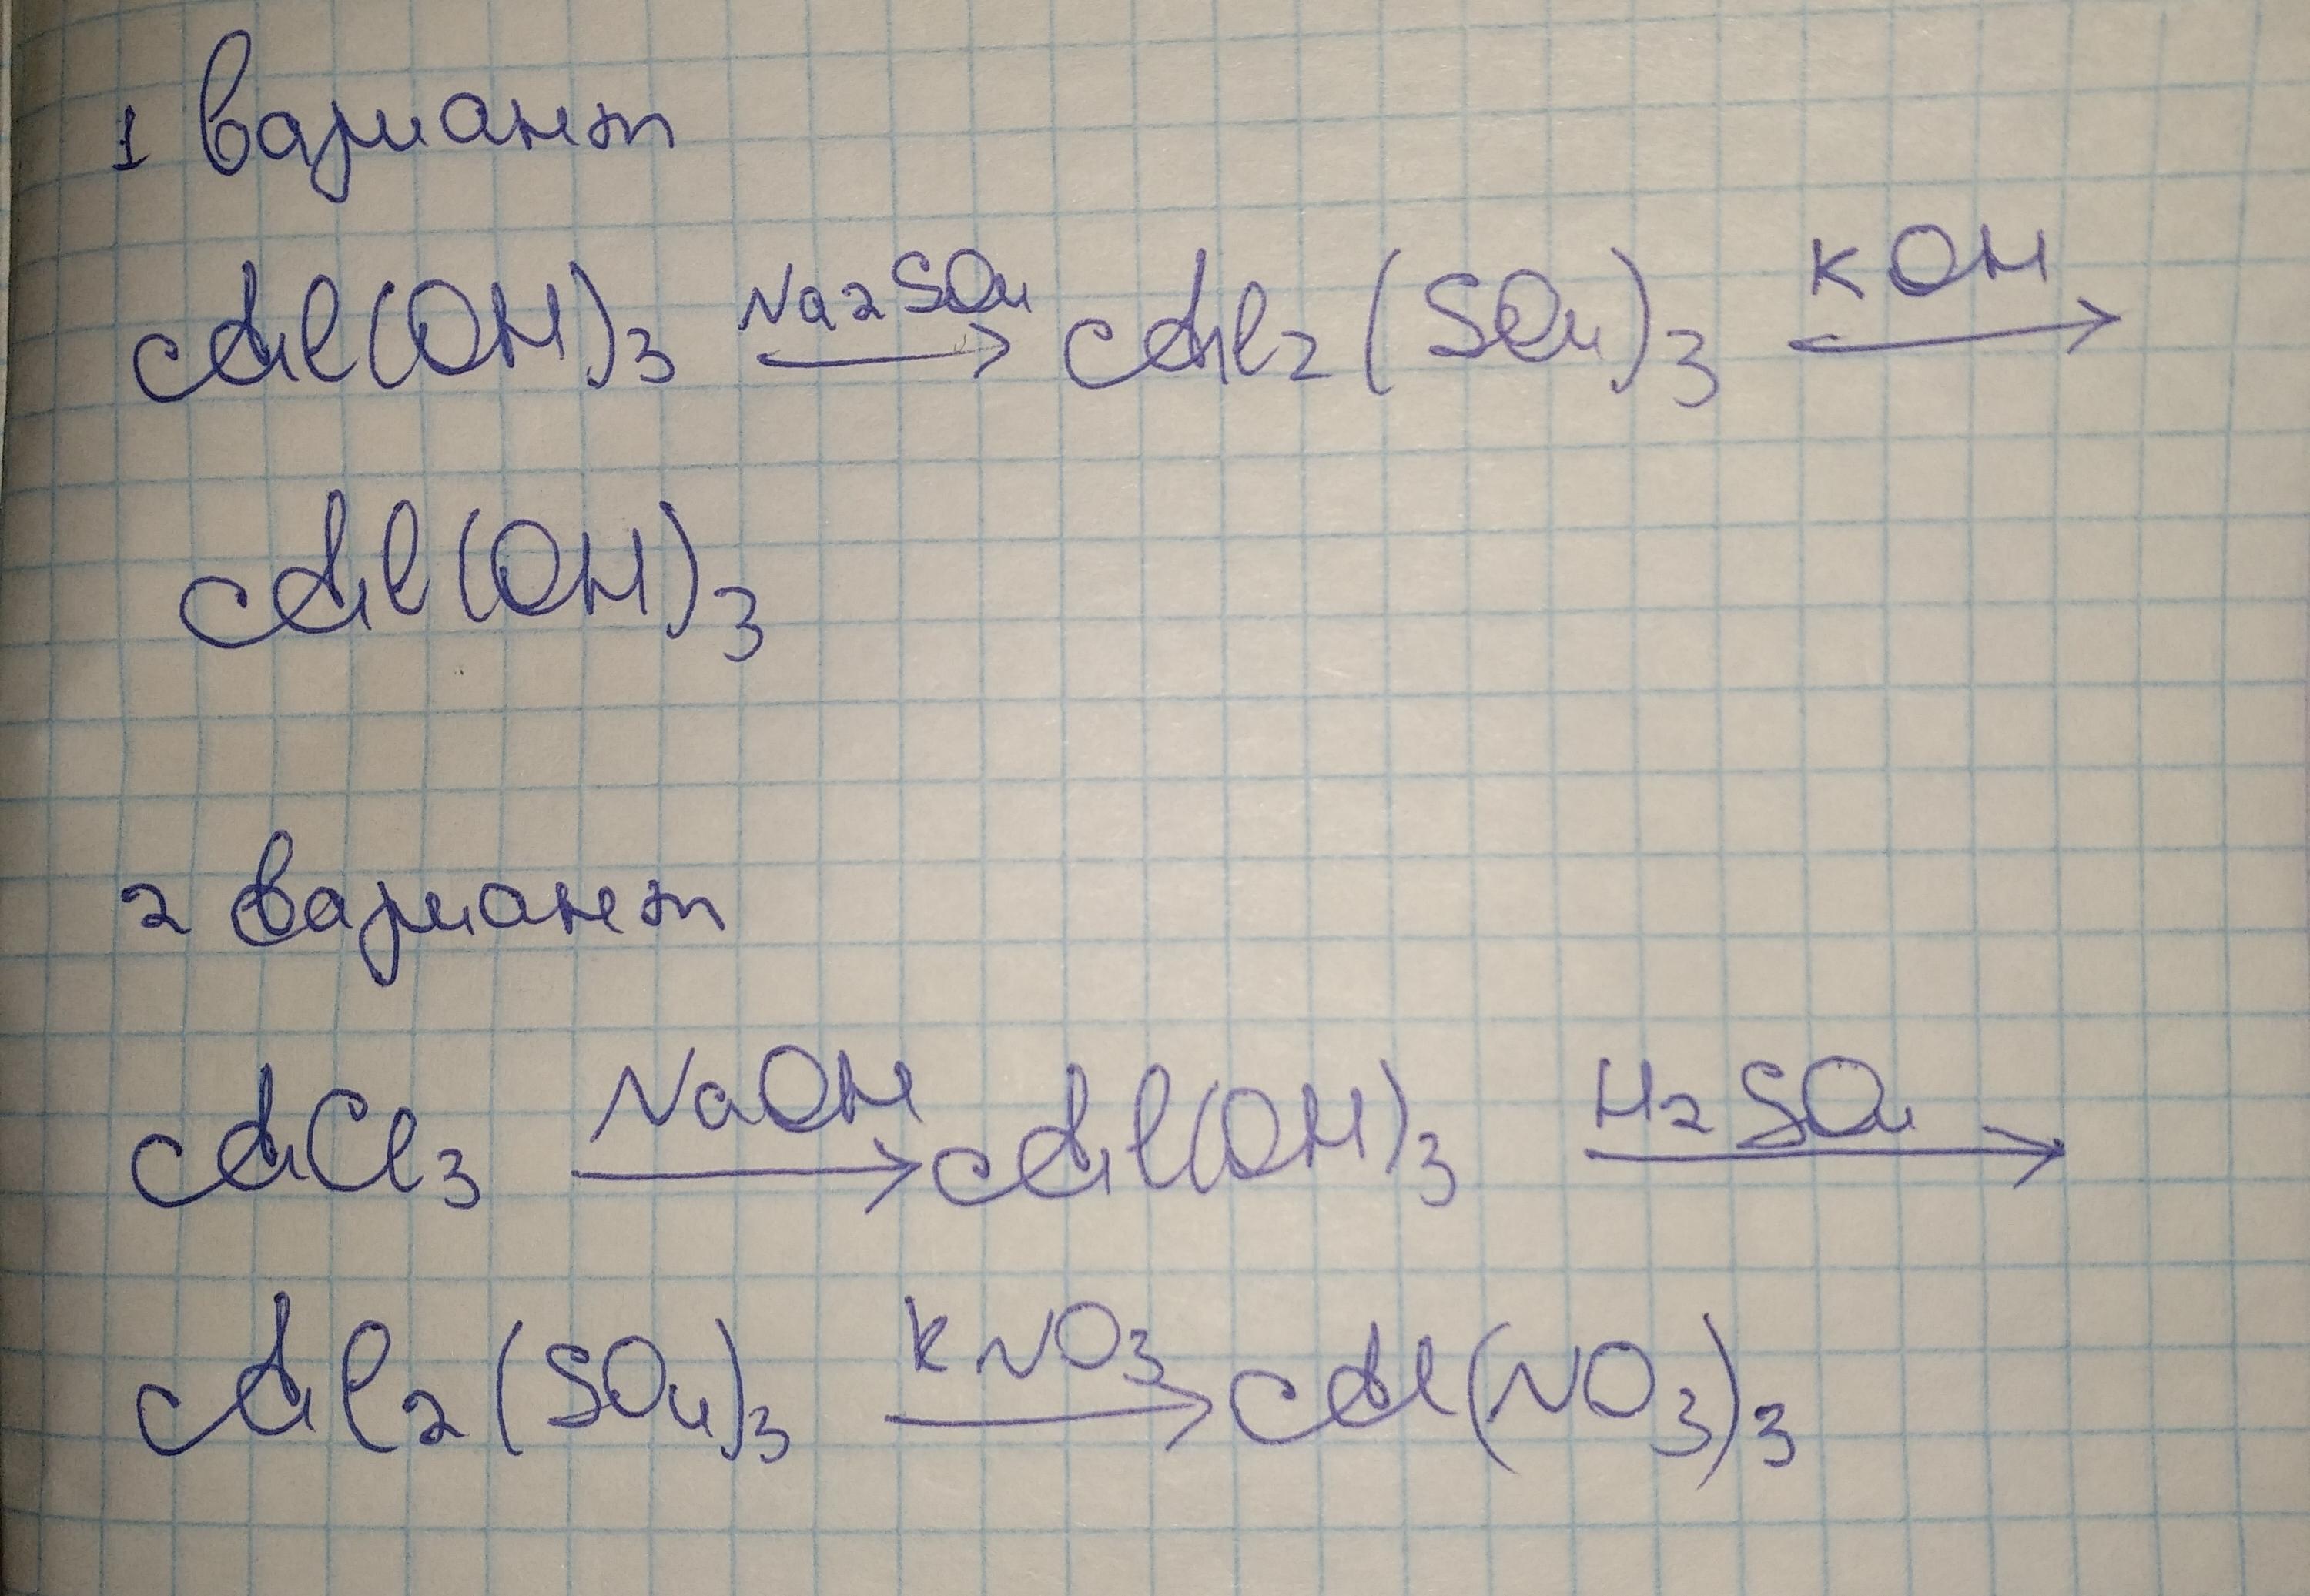 1 вариант
Al(OH)3 Na2SO4→ Al2(SO4)3 KOH→
Al(OH)3
2 вариант
AlCl3 NaOH→ Al(OH)3 H2SO4→
Al2(SO4)3 KNO3→ Al(NO3)3